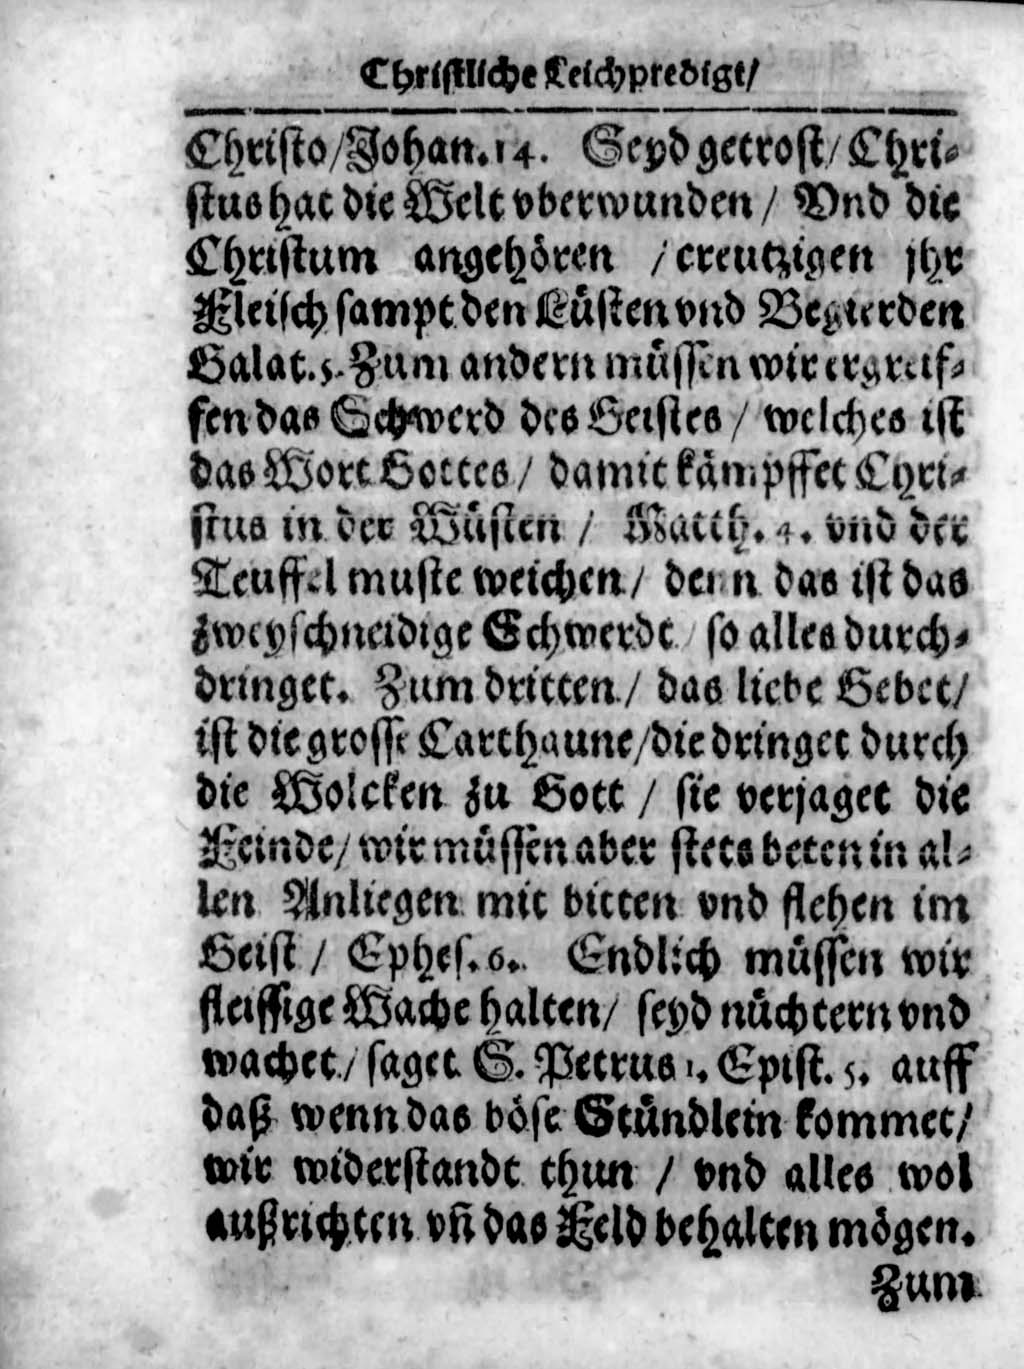 Christliche Leichpredigt/
Christo/Johan.14. Seyd getrost/ Chri-
stus hat die Welt vberwunden / Vnd die
Christum angehören / creutzigen jhr
Fleisch sampt den Lüsten vnd Begierden
Galat.5. Zum andern müssen wir ergreif-
fen das Schwerd des Geistes / welches ist
das Wort Gottes/ damit kämpffet Chri-
stus in der Wüsten / Matth. 4. vnd der
Teuffel muste weichen/ denn das ist das
zweyschneidige Schwerdt/ so alles durch-
dringet. Zum dritten/ das liebe Gebet/
ist die grosse Carthaune/die dringet durch
die Wolcken zu Gott / sie verjaget die
Feinde/ wir müssen aber stets beten in al-
len Anliegen mit bitten vnd flehen im
Geist / Ephes. 6. Endlich müssen wir
fleissige Wache halten/ seyd nüchtern vnd
wachet/ saget S. Petrus 1. Epist. 5. auff
daß wenn das böse Stündlein kommet/
wir widerstandt thun / vnd alles wol
außrichten vñ das Feld behalten mögen.
Zum